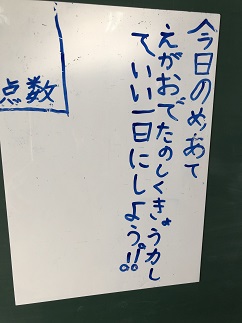 今日のめあて
えがおでたのしくきょうカし
ていい一日にしよう!!
点数